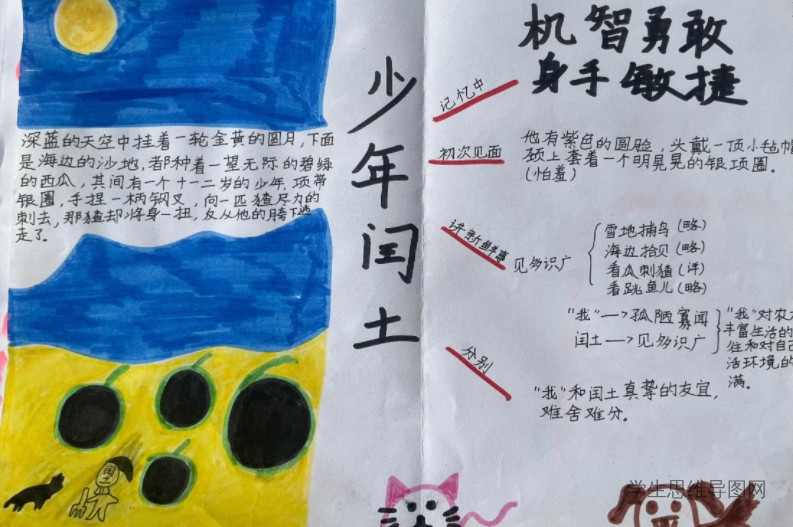 深蓝的天空中挂着一轮金黄的圆月,下面
是海边的沙地,都种着一望无际的碧绿
的西瓜,其间有一个十一二岁的少年,项带
银圈,手捏一柄钢叉,向一匹猹尽力的
刺去,那猹却将身一扭,反从他的胯下逃
走了。
少年闰土
机智勇敢
身手敏捷
记忆中
初次见面
他有紫色的圆脸,头戴一顶小毡帽
颈上套着一个明晃晃的银项圈。
(怕羞)
讲新鲜事
见多识广
雪地捕鸟(略)
海边拾贝(略)
看瓜刺猹(详)
看跳鱼儿(略)
"我"—>孤陋寡闻
闰土—>见多识广
"我"对农
丰富生活的
往和对自己
活环境的
满。
分别
"我"和闰土真挚的友宜,
难舍难分。
闰土
学生思维导图网